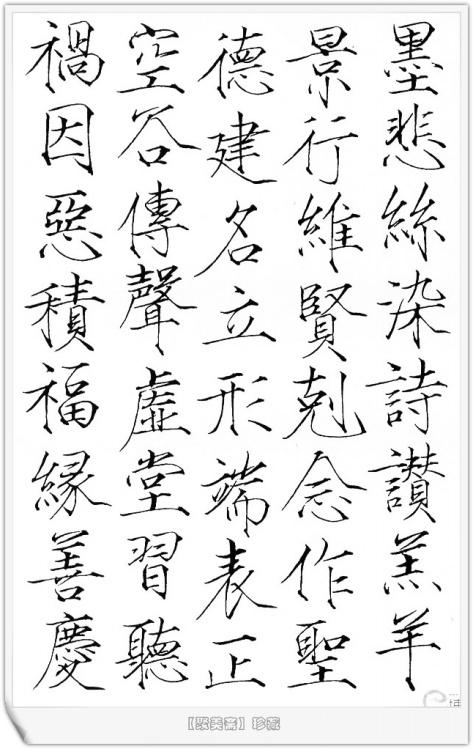 墨悲絲染詩讃羔羊
景行維賢剋念作聖
德建名立形端表正
空谷傳聲虛堂習聽
禍因惡積福緣善慶
珍藏